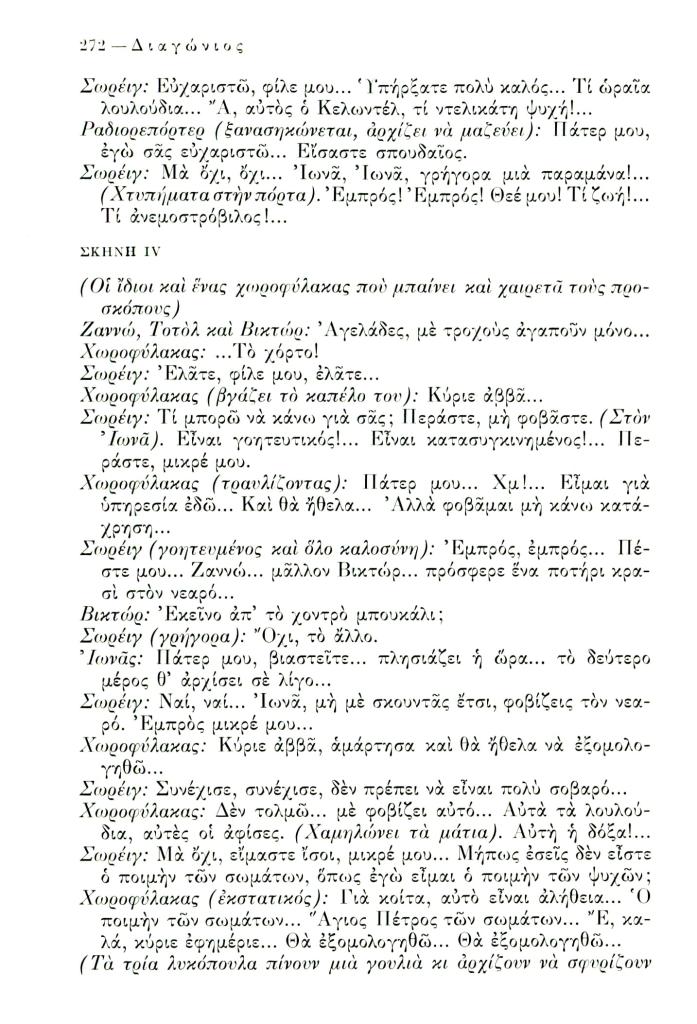 272 — Διαγώνιος
Σωρέιγ: Εὐχαριστῶ, φίλε μου... Ὑπήρξατε πολὺ καλός... Τί ὡραῖα
λουλούδια... Ἄ, αὐτὸς ὁ Κελωντέλ, τί ντελικάτη ψυχή!...
Ραδιορεπόρτερ (ξανασηκώνεται, ἀρχίζει νὰ μαζεύει): Πάτερ μου,
ἐγὼ σᾶς εὐχαριστῶ... Εἴσαστε σπουδαῖος.
Σωρέιγ: Μὰ ὄχι, ὄχι... Ἰωνᾶ, Ἰωνᾶ, γρήγορα μιὰ παραμάνα!...
(Χτυπήματα στὴν πόρτα). Ἐμπρός! Ἐμπρός! Θεέ μου! Τί ζωή!...
Τί ἀνεμοστρόβιλος!...
ΣΚΗΝΗ IV
(Οἱ ἴδιοι καὶ ἕνας χωροφύλακας ποὺ μπαίνει καὶ χαιρετᾶ τοὺς προ-
σκόπους)
Ζαννώ, Τοτὸλ καὶ Βικτώρ: Ἀγελάδες, μὲ τροχοὺς ἀγαποῦν μόνο...
Χωροφύλακας: ...Τὸ χόρτο!
Σωρέιγ: Ἐλᾶτε, φίλε μου, ἐλᾶτε...
Χωροφύλακας (βγάζει τὸ καπέλο του): Κύριε ἀββᾶ...
Σωρέιγ: Τί μπορῶ νὰ κάνω γιὰ σᾶς; Περάστε, μὴ φοβᾶστε. (Στὸν
Ἰωνᾶ). Εἶναι γοητευτικός!... Εἶναι κατασυγκινημένος!... Πε-
ράστε, μικρέ μου.
Χωροφύλακας (τραυλίζοντας): Πάτερ μου... Χμ!... Εἶμαι γιὰ
ὑπηρεσία ἐδῶ... Καὶ θὰ ἤθελα... Ἀλλὰ φοβᾶμαι μὴ κάνω κατά-
χρηση...
Σωρέιγ (γοητευμένος καὶ ὅλο καλοσύνη): Ἐμπρός, ἐμπρός... Πέ-
στε μου... Ζαννώ... μᾶλλον Βικτώρ... πρόσφερε ἕνα ποτήρι κρα-
σὶ στὸν νεαρό...
Βικτώρ: Ἐκεῖνο ἀπ' τὸ χοντρὸ μπουκάλι;
Σωρέιγ (γρήγορα): Ὄχι, τὸ ἄλλο.
Ἰωνᾶς: Πάτερ μου, βιαστεῖτε... πλησιάζει ἡ ὥρα... τὸ δεύτερο
μέρος θ' ἀρχίσει σὲ λίγο...
Σωρέιγ: Ναί, ναί... Ἰωνᾶ, μὴ μὲ σκουντᾶς ἔτσι, φοβίζεις τὸν νεα-
ρό. Ἐμπρὸς μικρέ μου...
Χωροφύλακας: Κύριε ἀββᾶ, ἁμάρτησα καὶ θὰ ἤθελα νὰ ἐξομολο-
γηθῶ...
Σωρέιγ: Συνέχισε, συνέχισε, δὲν πρέπει νὰ εἶναι πολὺ σοβαρό...
Χωροφύλακας: Δὲν τολμῶ... μὲ φοβίζει αὐτό... Αὐτὰ τὰ λουλού-
δια, αὐτὲς οἱ ἀφίσες. (Χαμηλώνει τὰ μάτια). Αὐτὴ ἡ δόξα!...
Σωρέιγ: Μὰ ὄχι, εἴμαστε ἴσοι, μικρέ μου... Μήπως ἐσεῖς δὲν εἶστε
ὁ ποιμὴν τῶν σωμάτων, ὅπως ἐγὼ εἶμαι ὁ ποιμὴν τῶν ψυχῶν;
Χωροφύλακας (ἐκστατικός): Γιὰ κοίτα, αὐτὸ εἶναι ἀλήθεια... Ὁ
ποιμὴν τῶν σωμάτων... Ἅγιος Πέτρος τῶν σωμάτων... Ἔ, κα-
λά, κύριε ἐφημέριε... Θὰ ἐξομολογηθῶ... Θὰ ἐξομολογηθῶ...
(Τὰ τρία λυκόπουλα πίνουν μιὰ γουλιὰ κι ἀρχίζουν νὰ σφυρίζουν